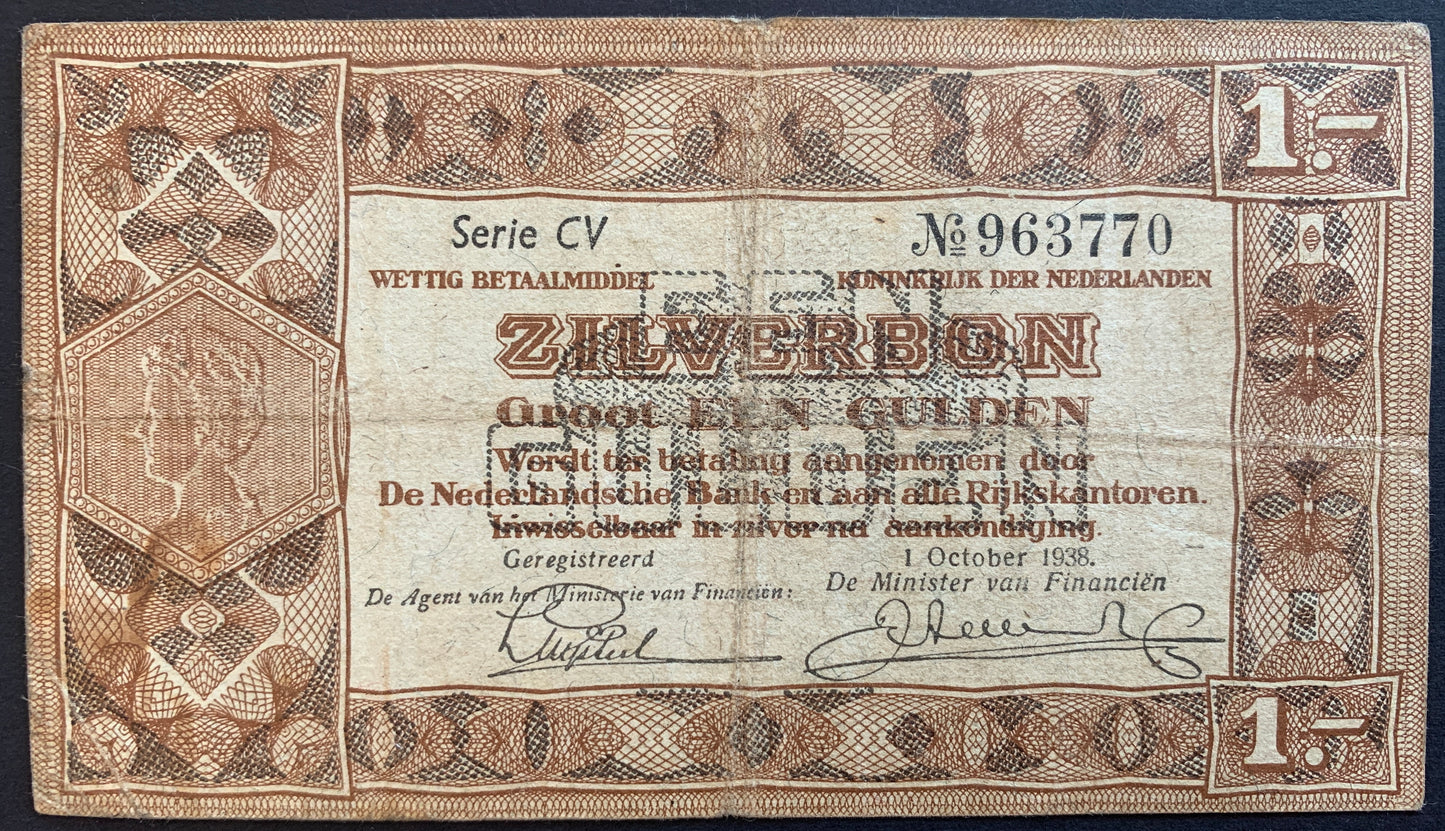 1.-
Serie CV № 963770
WETTIG BETAALMIDDEL KONINKRIJK DER NEDERLANDEN
EEN
ZILVERBON
Groot EEN GULDEN
GULDEN
Wordt ter betaling aangenomen door
De Nederlandsche Bank en aan alle Rijkskantoren.
Inwisselbaar in zilver na aankondiging.
Geregistreerd 1 October 1938.
De Agent van het Ministerie van Financiën: De Minister van Financiën
1.-